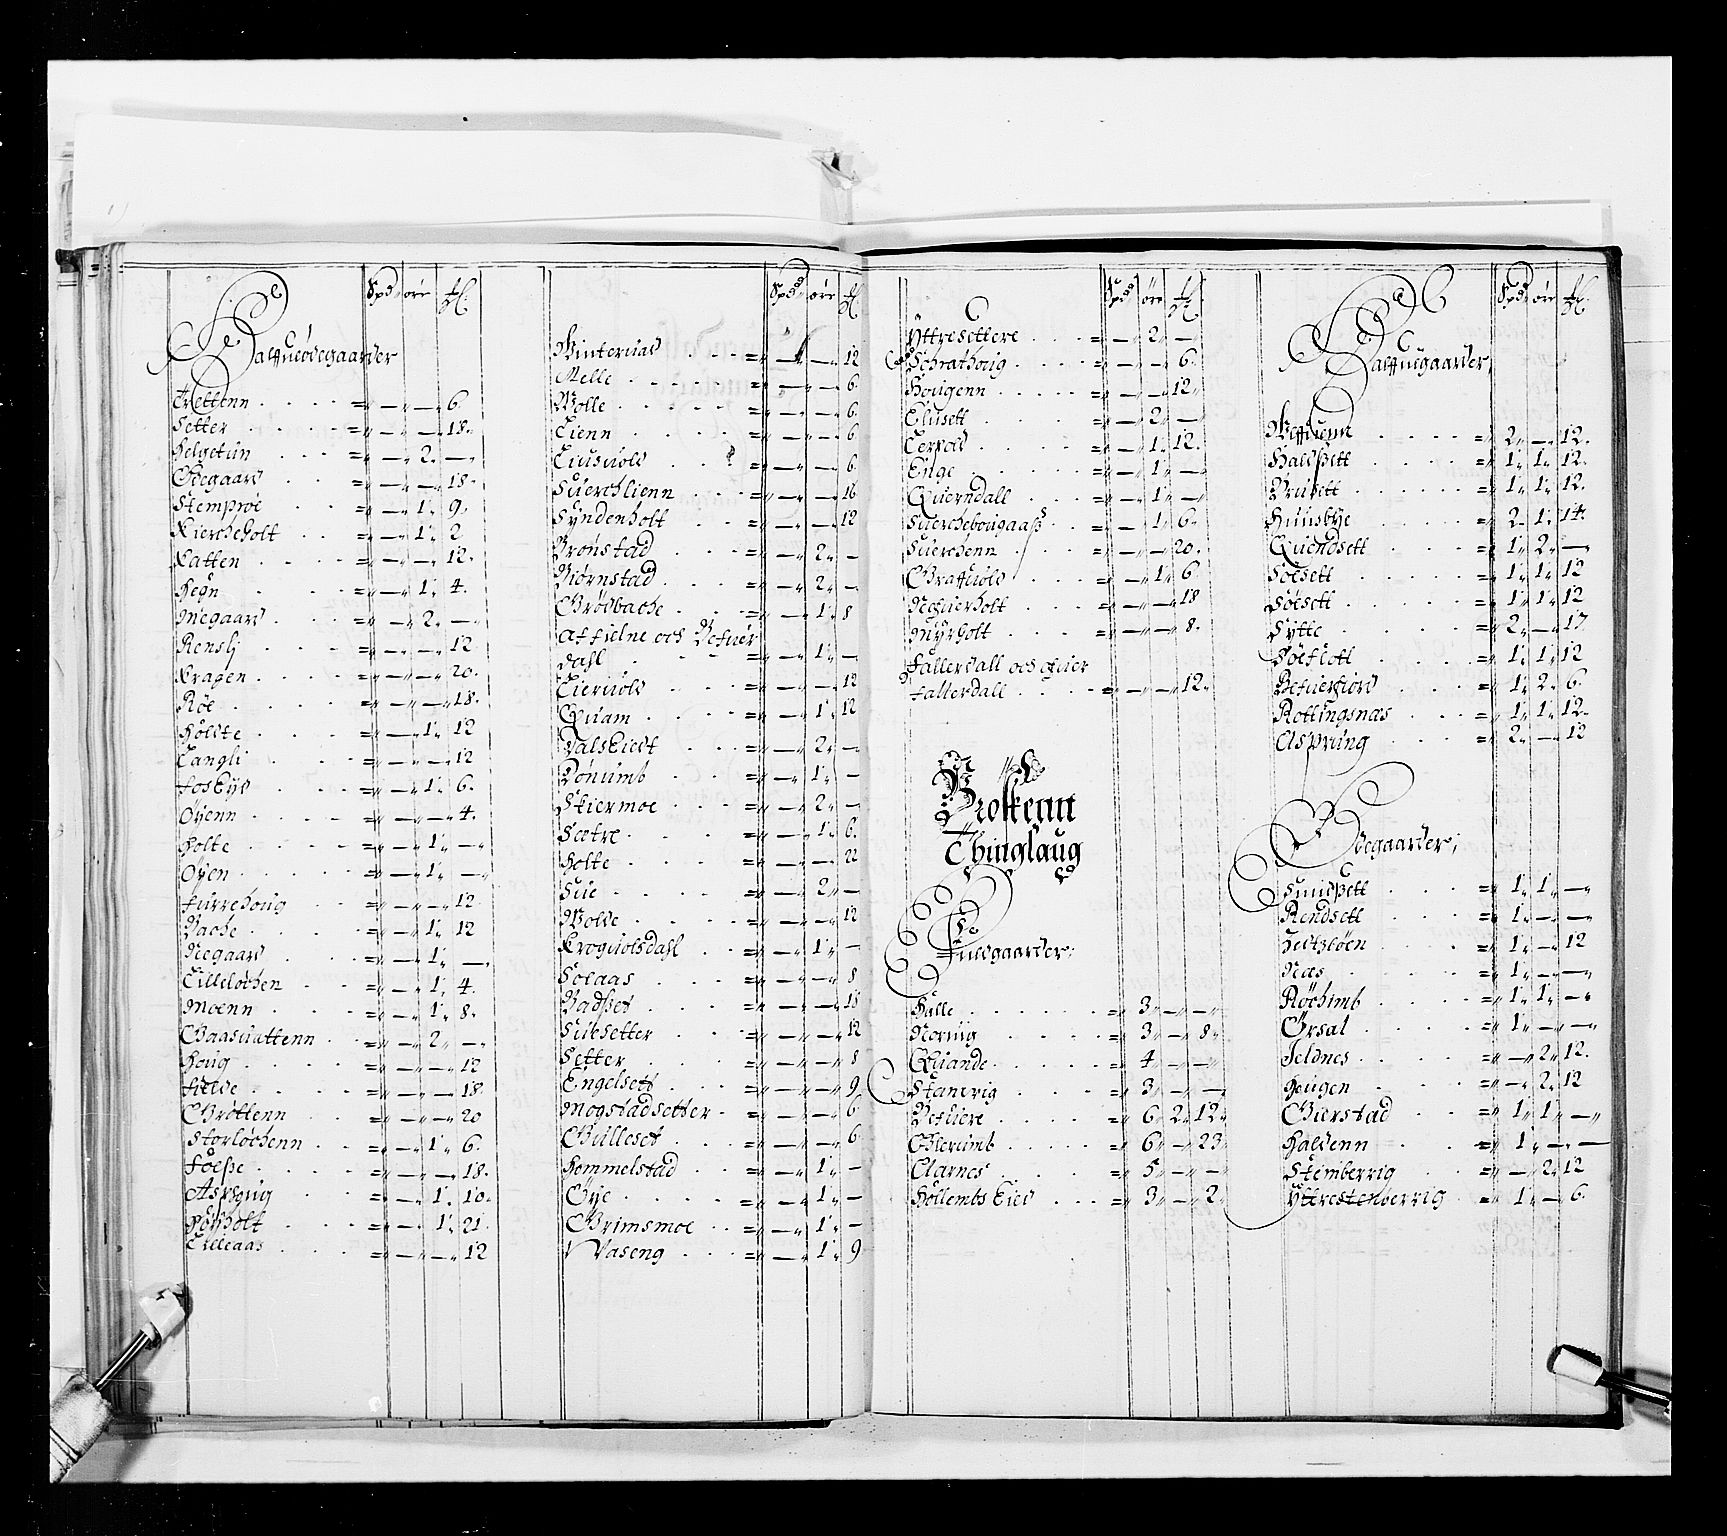 Spd ore ₰
Halffueødegaarder
Trettenn . . . . = — — 6
Setter . . . . = — — 18
Helgetun . . . = — 2 —
Ødegaard . . . = — — 18
Stemproe . . = — 1 9
Kiercheholt . . = — 1 2
Katten . . . . = — — 12
Hegn . . . . = — 1 4
Megaard . . . = — 2 —
Renslj . . . = — — 12
Kragen . . . . = — — 20
Røe . . . . = — — 18
Holdte . . . . = — 1 12
Langli . . . . = — — 12
Foseyd . . . . = — 1 6
Øyenn . . . . = — — 4
Holte . . . . = — 1 —
Øyen . . . . = — 1 —
Furrehoug . . . = — — 12
Bache . . . . = — 1 12
Negaard . . . = — 1 —
Lilleløchen . . = — 1 4
Moenn . . . . = — 1 8
Gaasuattenn . . = — 2 —
Houg . . . . = — — 12
Fielde . . . . = — — 18
Grøttenn . . . = — — 20
Storløchenn . . = — 1 6
Foesse . . . . = — — 18
Asphoug . . . = — 1 10
Holt . . . = — 1 21
Lilleaas . . . = — — 12
Spd ore ₰
Winteruald . . . = — — 12
Melle . . . . = — — 6
Wolle . . . . = — — 6
Lienn . . . . = — — 6
Liusuold . . . = — — 6
Suerchlienn . . = — — 16
Syndenholt . . = — — 12
Brønstad . . . = — 2 —
Biørnstad . . . = — 2 —
Grødbache . . . = — 1 8
Affielne och Befuer
dahl . . . = — 1 —
Lieruold . . . = — — 12
Quam . . . . = — 1 12
Valskiedt . . . = — 2 —
Dønumb . . . = — 1 —
Stiermoe . . . = — 2 —
Sætre . . . . = — 1 6
Holte . . . . = — — 22
Lue . . . . = — 2 —
Wolde . . . . = — — 12
Kroguolsdahl . . = — 1 —
Solaas . . . . = — — 8
Badset . . . . = — — 18
Subsetter . . . = — — 12
Setter . . . . = — — 8
Engelsett . . . = — — 9
Mogstadsetter . = — — 6
Gulleset . . . = — — 6
Hommelstad . . = — 1 —
Øye . . . . = — 1 —
Grimsmoe . . = — 1 —
Vaseng . . . = — 1 9
Spd ore ₰
Yttresettere . . = — 2 —
Schrathoug . . . = — — 6
Hougenn . . . . = — — 12
Eliusett . . . = — 2 —
Leruold . . . = — 1 12
Enge . . . . = — 1 —
Querndall . . . = — 1 —
Suerchebougaass . . = — 1 6
Suerchenn . . = — — 20
Graffuold . . = — 1 6
Nefuerholt . . = — — 18
Myrholt . . . = — — 8
Fallerdall och ofuer
Fallerdall . . . = — — 12
Broskenn
Thinglaug
Fuldgaarder;
Halle . . . . = 3 — —
Noruig . . . . = 3 — 8
Quande . . . . = 4 — —
Staneuig . . . = 3 — —
Befuere . . . . = 6 2 12
Glerumb . . . = 6 — 23
Clarnes . . . = 5 — —
Hollembs Eied . . = 3 — 2
Spd ore ₰
Halffuegaarder;
Haldsett . . . = 1 1 12
Brusett . . . = 1 1 12
Huusbye . . . = 2 1 14
Quendsett . . . = 1 2 —
Solsett . . . = 1 1 12
Søesett . . . = 1 1 12
Sytte . . . . = 2 — 17
Søeflott . . . = 1 1 12
Befuerfiord . . = 1 2 6
Rottingsnæs . . = 1 1 12
Asprung . . . = 2 — 12
Ødegaarder;
Sundsett . . . = 1 1 —
Rendsett . . . = 1 — —
Holtzbøen . . = 1 — 12
Næs . . . . = 1 — —
Røchimb . . . = 1 1 —
Ørsal . . . . = 1 — —
Seldnes . . . = — 2 12
Hougen . . . = — 2 12
Gierstad . . . = 1 1 —
Haldenn . . . = 1 — —
Stemberrig . . = — 2 12
Yttrestenberrig . = 1 — 6